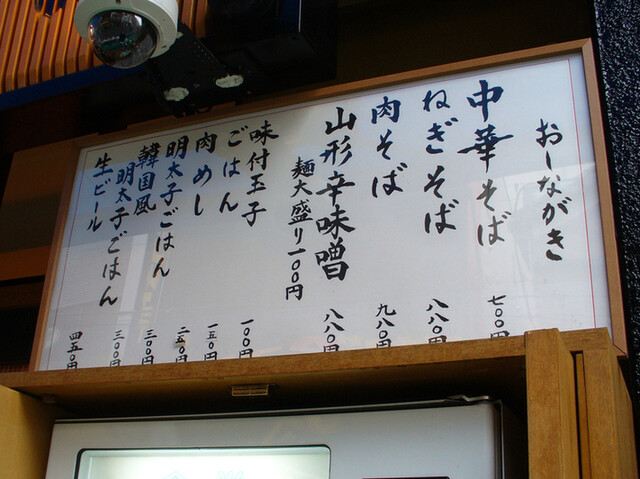 おしながき
中華そば 七〇〇円
ねぎそば 八八〇円
肉そば 九八〇円
山形辛味噌 八八〇円
麺大盛り一〇〇円
味付玉子 一〇〇円
ごはん 一五〇円
肉めし 二五〇円
明太子ごはん 三〇〇円
韓国風
明太子ごはん 三〇〇円
生ビール 四五〇円